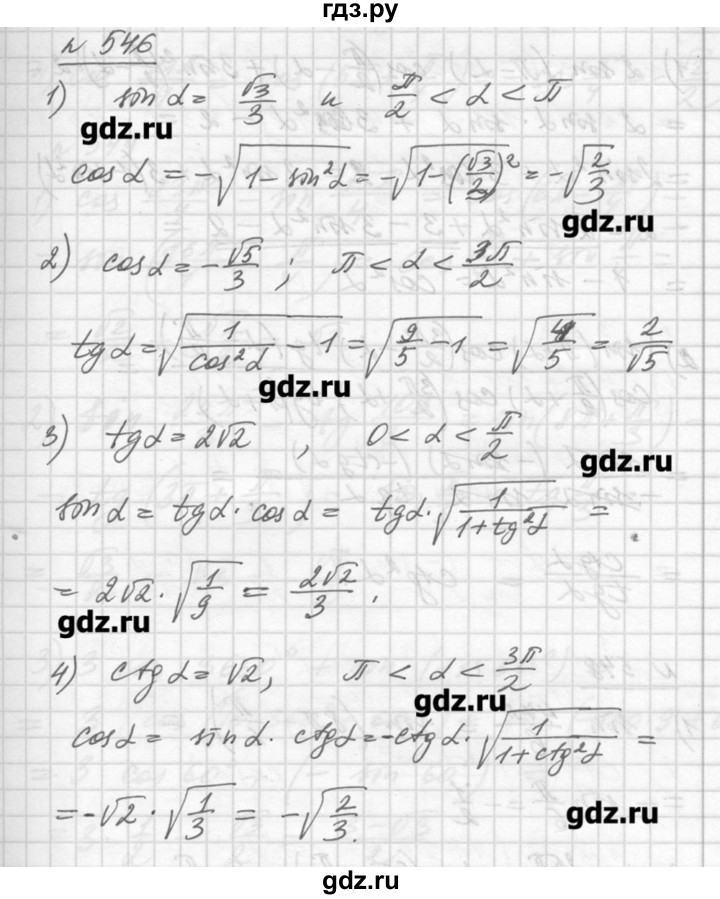 гдз.ру
№ 546
1) sin α = √3/3 и π/2 < α < π
gdz.ru
cos α = -√(1 - sin²α) = -√(1 - (√3/3)²) = -√(2/3)
gdz.ru
2) cos α = -√5/3 ; π < α < 3π/2
tg α = √(1/cos²α - 1) = √(9/5 - 1) = √(4/5) = 2/√5
gdz.ru
3) tg α = 2√2 , 0 < α < π/2
gdz.ru
sin α = tg α · cos α = tg α · √(1/(1+tg²α)) =
= 2√2 · √(1/9) = 2√2/3 .
gdz.ru
4) ctg α = √2, π < α < 3π/2
gdz.ru
cos α = sin α · ctg α = -ctg α · √(1/(1+ctg²α)) =
= -√2 · √(1/3) = -√(2/3).
gdz.ru
gdz.ru